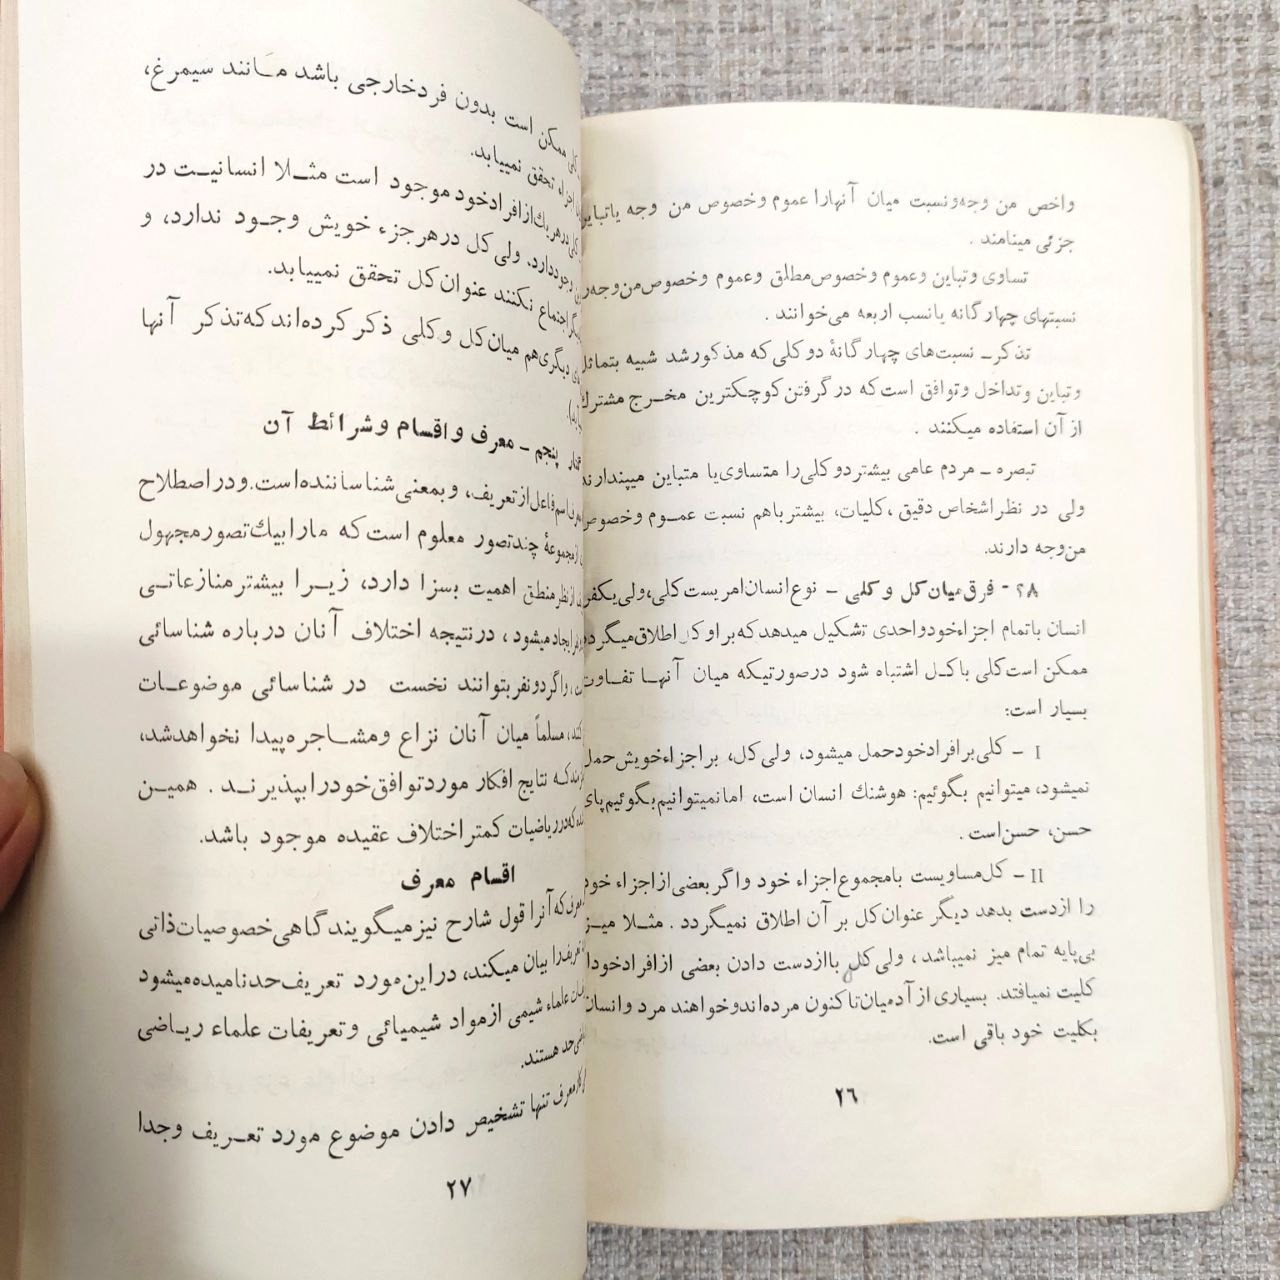 واخص من وجه ونسبت میان آنهارا عموم وخصوص من وجه یاتباین
جزئی مینامند .
تساوی وتباین وعموم وخصوص مطلق وعموم وخصوص من وجه را
نسبتهای چهارگانه یانسب اربعه می‌خوانند .
تذکر ـ نسبت‌های چهارگانهٔ دوکلی که مذکورشد شبیه بتماثل
وتباین وتداخل وتوافق است که درگرفتن کوچکترین مخرج مشترك
از آن استفاده میکنند .
تبصره ـ مردم عامی بیشتر دوکلی را متساوی یا متباین میپندارند
ولی در نظر اشخاص دقیق ، کلیات، بیشتر باهم نسبت عموم وخصوص
من وجه دارند.
۲۸- فرق میان کل و کلی - نوع انسان امریست کلی، ولی یکفر
انسان باتمام اجزاء خود واحدی تشکیل میدهد که براوکل اطلاق میگردد
ممکن است کلی باکل اشتباه شود درصورتیکه میان آنها تفاوت
بسیار است:
I ـ کلی برافرادخود حمل میشود، ولی کل، براجزاء خویش حمل
نمیشود، میتوانیم بگوئیم: هوشنك انسان است، امانمیتوانیم بگوئیم پای
حسن، حسن است .
II ـ کل مساویست بامجموع اجزاء خود واگر بعضی از اجزاء خود
را ازدست بدهد دیگر عنوان کل بر آن اطلاق نمیگردد . مثلا میز
بی‌پایه تمام میز نمیباشد ، ولی کل باازدست دادن بعضی از افرادخود از
کلیت نمیافتد. بسیاری از آدمیان تاکنون مرده‌اند وخواهند مرد وانسان
بکلیت خود باقی است.
۲۶
کلی ممکن است بدون فردخارجی باشد مانند سیمرغ،
اجزاء تحقق نمییابد.
کلی درهریك از افرادخود موجود است مثلا انسانیت در
وجوددارد. ولی کل درهرجزء خویش وجود ندارد، و
اجتماع نکنند عنوان کل تحقق نمییابد.
دیگری هم میان کل وکلی ذکر کرده‌اند که تذکر آنها
پنجم ـ معرف واقسام وشرائط آن
اسم فاعل از تعریف، وبمعنی شناساننده است. ودراصطلاح
مجموعهٔ چندتصور معلوم است که مارابیك تصورمجهول
ازنظرمنطق اهمیت بسزا دارد، زیرا بیشترمنازعاتی
ایجادمیشود ، درنتیجه اختلاف آنان درباره شناسائی
، واگر دونفر بتوانند نخست در شناسائی موضوعات
کنند، مسلماً میان آنان نزاع ومشاجره پیدا نخواهدشد،
که نتایج افکار موردتوافق خودرابپذیرند . همین
که درریاضیات کمتر اختلاف عقیده موجود باشد.
اقسام معرف
معرف که آنرا قول شارح نیز میگویند گاهی خصوصیات ذاتی
تعریف را بیان میکند، دراین مورد تعریف حدنامیده میشود
علماء شیمی ازمواد شیمیائی وتعریفات علماء ریاضی
حد هستند.
معرف تنها تشخیص دادن موضوع مورد تعریف وجدا
۲۷